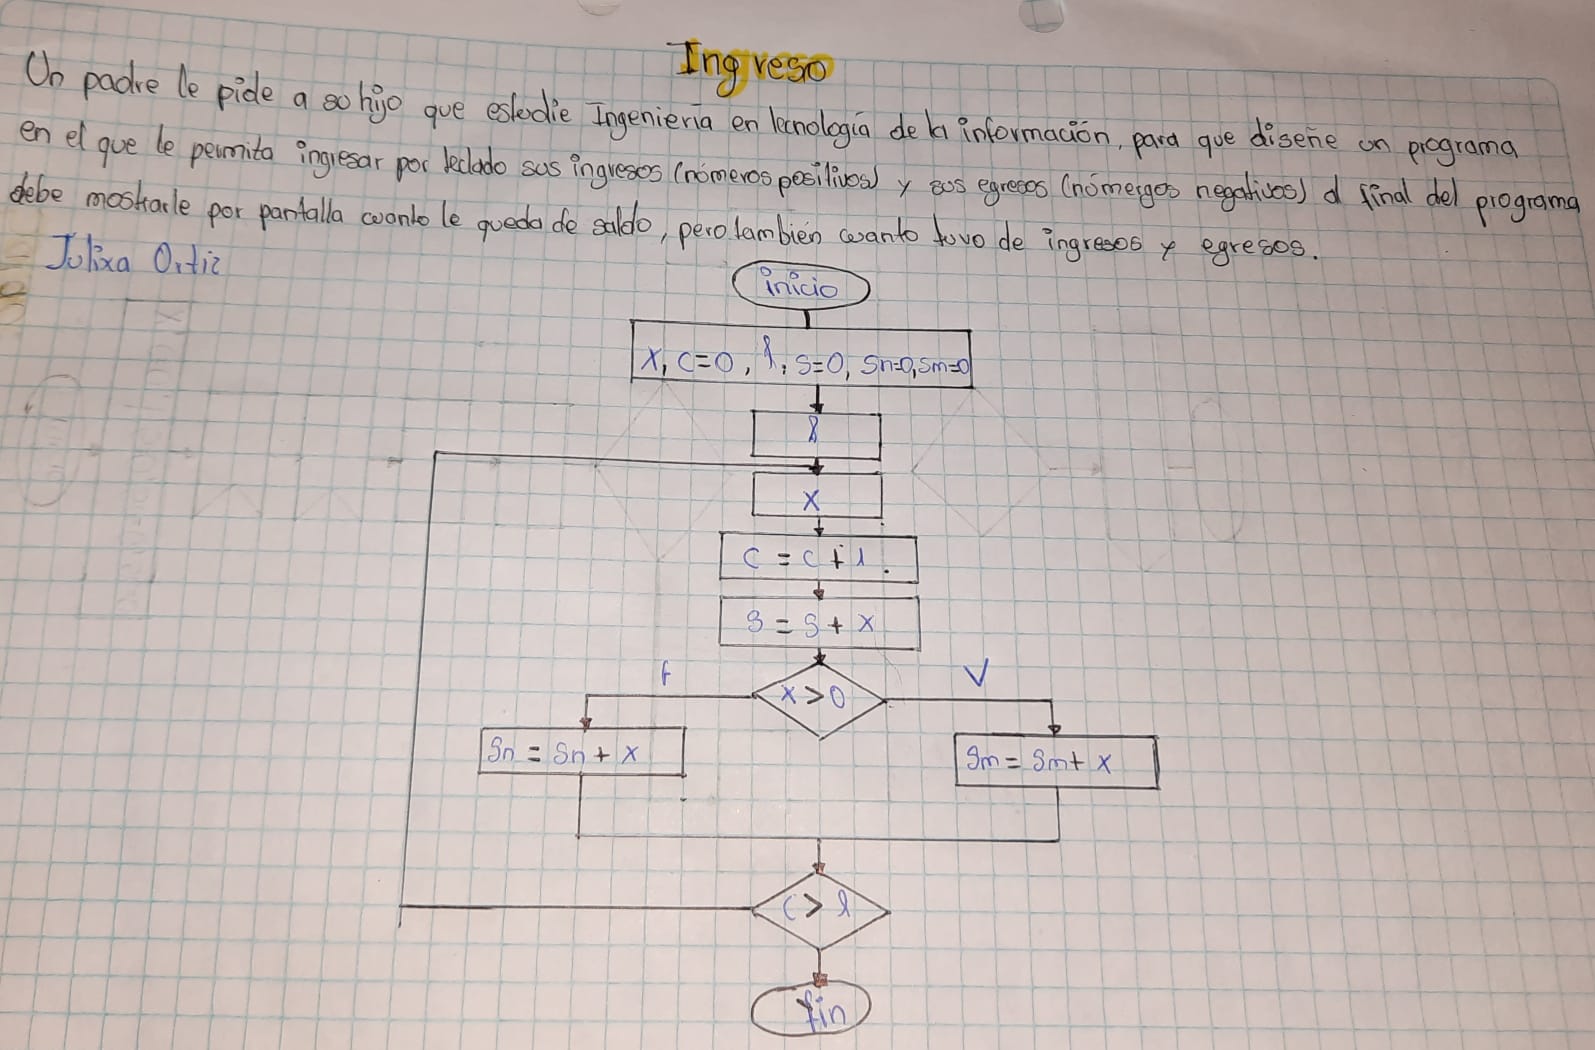 Ingreso
Un padre le pide a su hijo que estudie Ingeniería en tecnología de la información, para que diseñe un programa
en el que le permita ingresar por teclado sus ingresos (números positivos) y sus egresos (números negativos) al final del programa
debe mostrarle por pantalla cuanto le queda de saldo, pero también cuanto tuvo de ingresos y egresos.
Julixa Ortiz
inicio
X, C=0, l, S=0, Sn=0, Sm=0
l
X
C = C + 1.
S = S + X
f
V
X > 0
Sn = Sn + X
Sm = Sm + X
C > l
fin